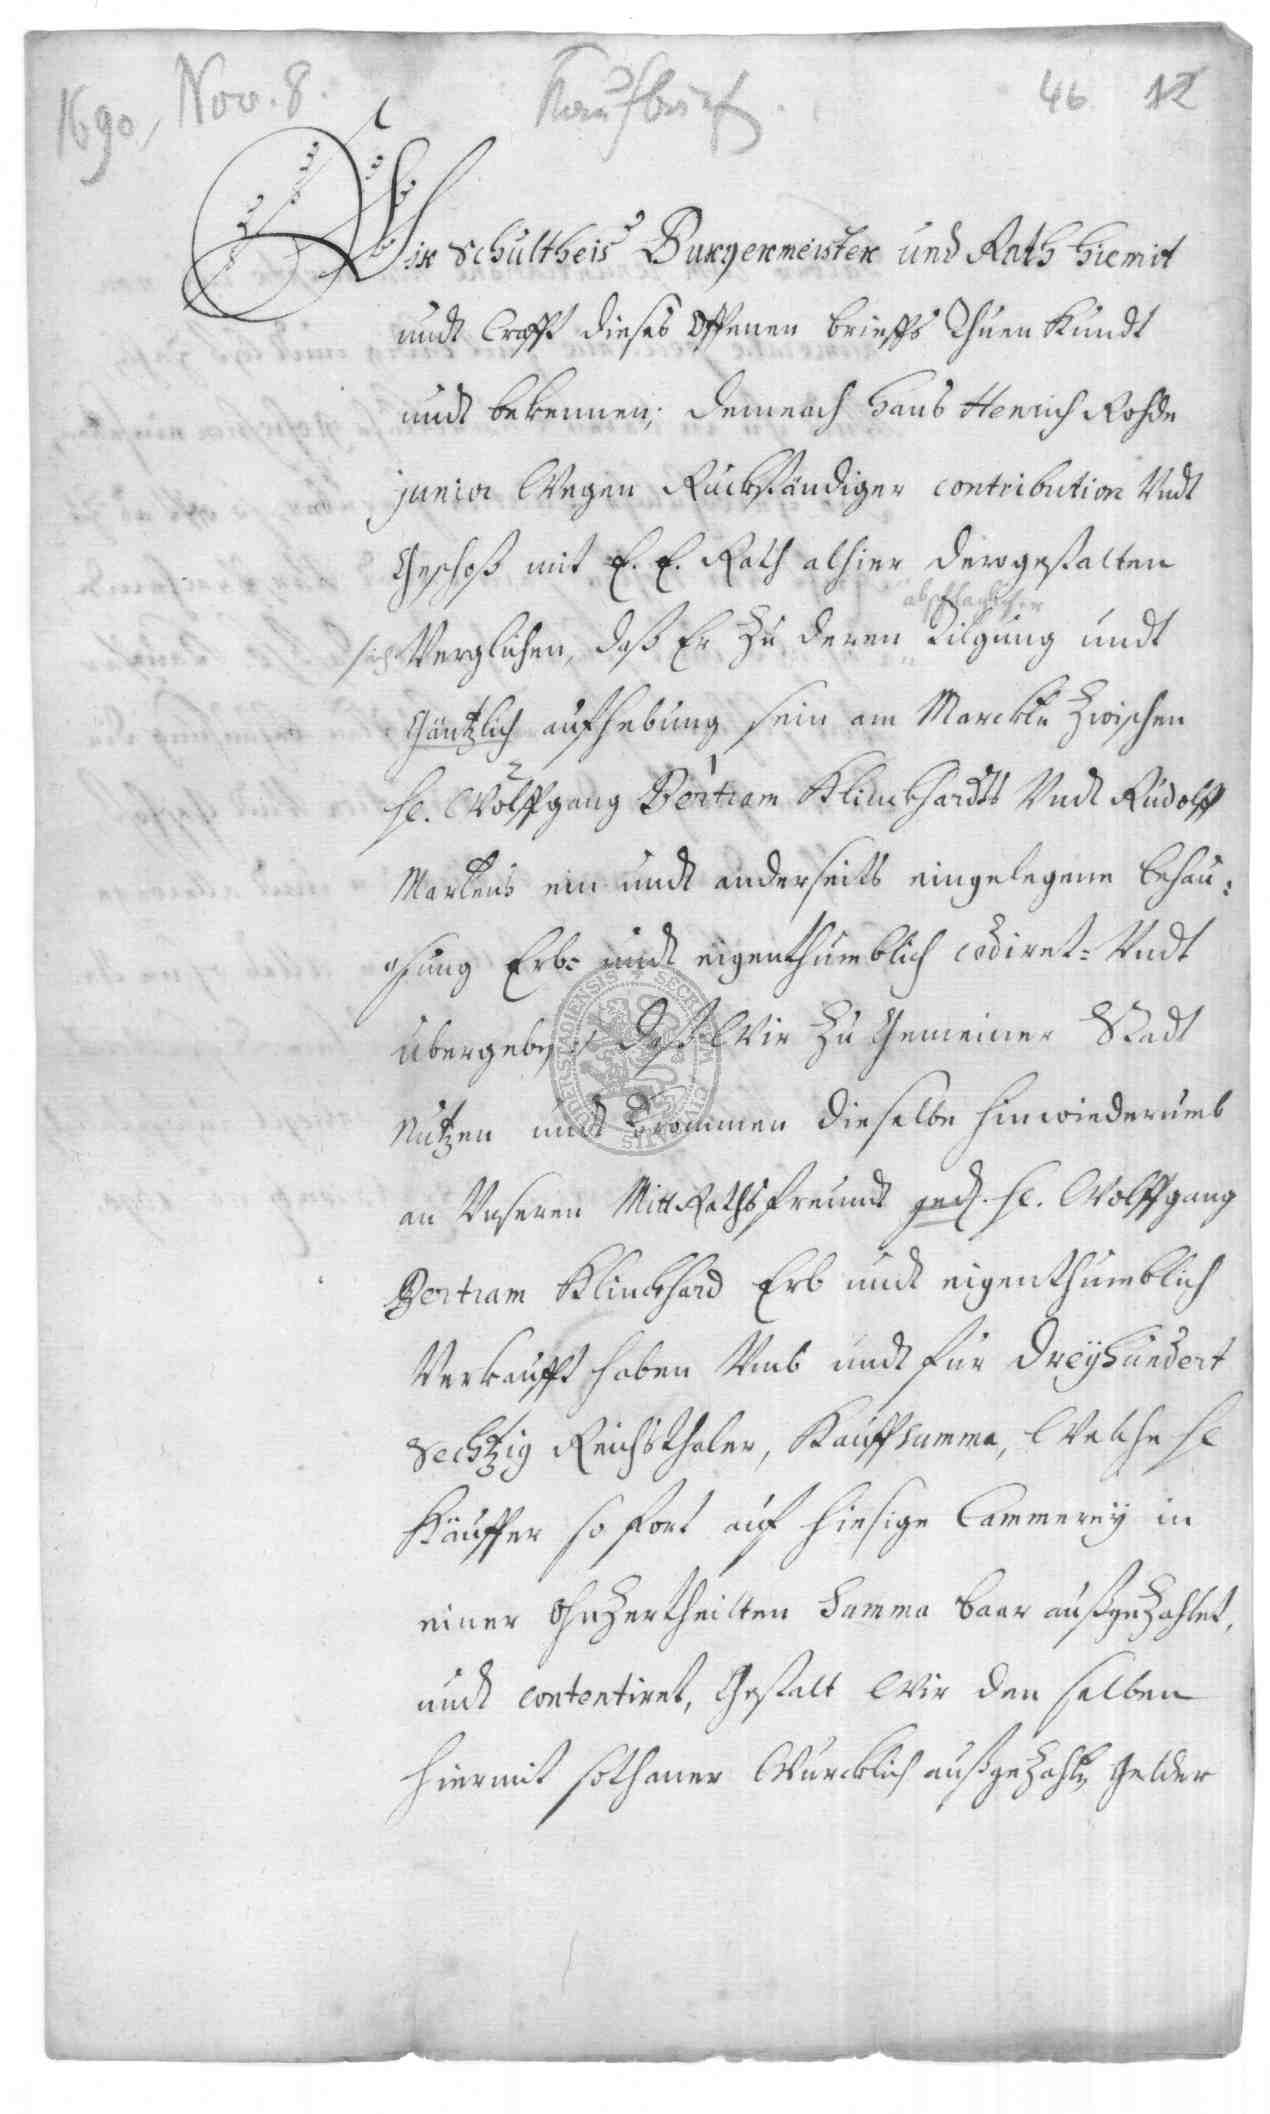 1690, Nov. 8. Kaufbrief. 46 12
Wir Schultheis Burgermeister und Rath hiemit
undt Crafft dieses Offenen brieffs Thuen kundt
undt bekennen; demnach Hans Henrich Rohde
junior Wegen Rückständiger contribution Undt
Geschoß mit E. E. Rath alhier dergestalten
abschlaglicher
sich Verglichen, daß Er zu deren Tilgung undt
Gäntzlich aufhebung sein am Marckte zwischen
H. Wolffgang Bertram Klinckhardts Undt Rudolff
Martens ein undt anderseits eingelegene behau:
ßung Erb= undt eigenthumblich cediret= Undt
übergeben daß Wir zu Gemeiner Stadt
Nutzen undt Frommen dieselbe hinwiederumb
an Unseren Mitt Rathsfreundt ged. H. Wolffgang
Bertram Klinckhard Erb undt eigenthumblich
Verkaufft haben Umb undt für dreÿhundert
Sechtzig Reichsthaler, Kauffsumma, Welche H
Käuffer so fort auf hiesige Cammereÿ in
einer ohnzertheilten Summa baar außgezahlet,
undt contentiret, Gestalt Wir den selben
hiermit sothaner Würcklich außgezahlten gelder
SECRETUM CIVITATIS DUDERSTADIENSIS